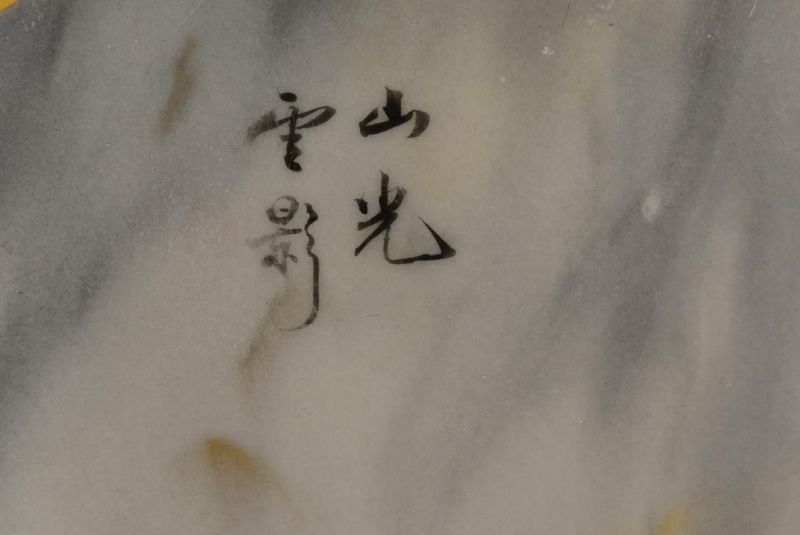 山光
雲影